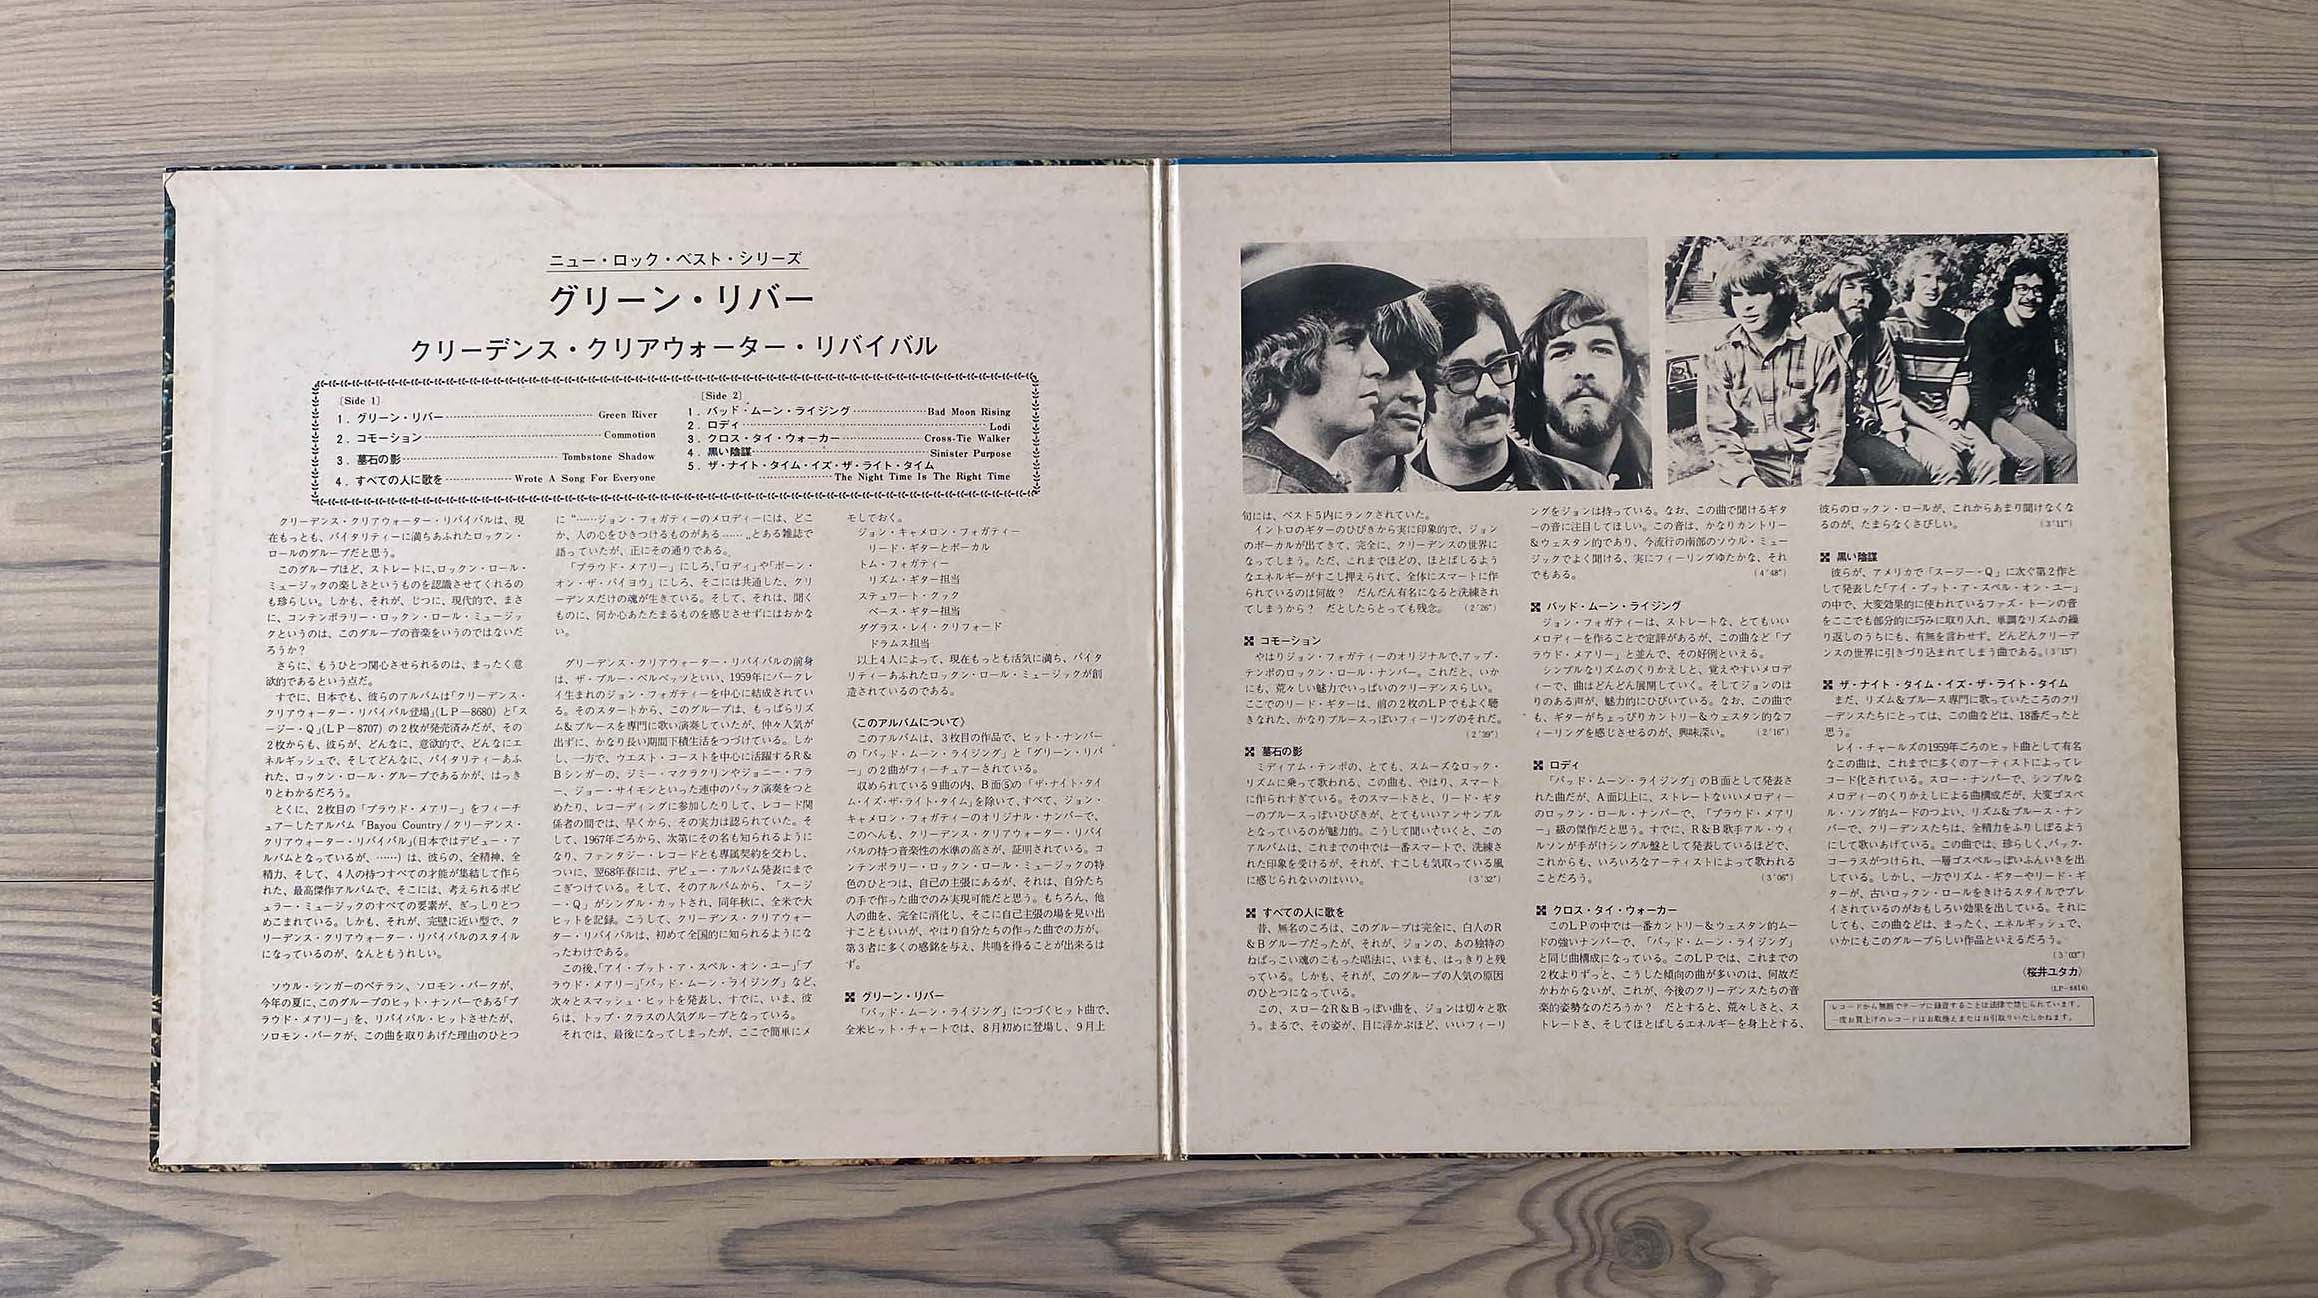 ニュー・ロック・ベスト・シリーズ
グリーン・リバー
クリーデンス・クリアウォーター・リバイバル
[Side 1]
1. グリーン・リバー Green River
2. コモーション Commotion
3. 墓石の影 Tombstone Shadow
4. すべての人に歌を Wrote A Song For Everyone
[Side 2]
1. バッド・ムーン・ライジング Bad Moon Rising
2. ロディ Lodi
3. クロス・タイ・ウォーカー Cross-Tie Walker
4. 黒い陰謀 Sinister Purpose
5. ザ・ナイト・タイム・イズ・ザ・ライト・タイム
The Night Time Is The Right Time
クリーデンス・クリアウォーター・リバイバルは、現
在もっとも、バイタリティーに満ちあふれたロックン・
ロールのグループだと思う。
このグループほど、ストレートに、ロックン・ロール・
ミュージックの楽しさというものを認識させてくれるの
も珍らしい。しかも、それが、じつに、現代的で、まさ
に、コンテンポラリー・ロックン・ロール・ミュージッ
クというのは、このグループの音楽をいうのではないだ
ろうか？
さらに、もうひとつ関心させられるのは、まったく意
欲的であるという点だ。
すでに、日本でも、彼らのアルバムは「クリーデンス・
クリアウォーター・リバイバル登場」(LP－8680) と「ス
ージー・Q」(LP－8707) の2枚が発売済みだが、その
2枚からも、彼らが、どんなに、意欲的で、どんなにエ
ネルギッシュで、そしてどんなに、バイタリティーあふ
れた、ロックン・ロール・グループであるかが、はっき
りとわかるだろう。
とくに、2枚目の「プラウド・メアリー」をフィーチ
ュアーしたアルバム「Bayou Country/クリーデンス・
クリアウォーター・リバイバル」(日本ではデビュー・ア
ルバムとなっているが、……) は、彼らの、全精神、全
精力、そして、4人の持つすべての才能が集結して作ら
れた、最高傑作アルバムで、そこには、考えられるポピ
ュラー・ミュージックのすべての要素が、ぎっしりとつ
めこまれている。しかも、それが、完璧に近い型で、ク
リーデンス・クリアウォーター・リバイバルのスタイル
になっているのが、なんともうれしい。
ソウル・シンガーのベテラン、ソロモン・バークが、
今年の夏に、このグループのヒット・ナンバーである「プ
ラウド・メアリー」を、リバイバル・ヒットさせたが、
ソロモン・バークが、この曲を取りあげた理由のひとつ
に “……ジョン・フォガティーのメロディーには、どこ
か、人の心をひきつけるものがある……„とある雑誌で
語っていたが、正にその通りである。
「プラウド・メアリー」にしろ、「ロディ」や「ボーン・
オン・ザ・バイヨウ」にしろ、そこには共通した、クリ
ーデンスだけの魂が生きている。そして、それは、聞く
ものに、何か心あたたまるものを感じさせずにはおかな
い。
クリーデンス・クリアウォーター・リバイバルの前身
は、ザ・ブルー・ベルベッツといい、1959年にバークレ
イ生まれのジョン・フォガティーを中心に結成されてい
る。そのスタートから、このグループは、もっぱらリズ
ム&ブルースを専門に歌い演奏していたが、仲々人気が
出ずに、かなり長い期間下積生活をつづけている。しか
し、一方で、ウエスト・コーストを中心に活躍するR&
Bシンガーの、ジミー・マクラクリンやジョニー・フラ
ー、ジョー・サイモンといった連中のバック演奏をつと
めたり、レコーディングに参加したりして、レコード関
係者の間では、早くから、その実力は認られていた。そ
して、1967年ごろから、次第にその名も知られるように
なり、ファンタジー・レコードとも専属契約を交わし、
ついに、翌68年春には、デビュー・アルバム発表にまで
こぎつけている。そして、そのアルバムから、「スージ
ー・Q」がシングル・カットされ、同年秋に、全米で大
ヒットを記録。こうして、クリーデンス・クリアウォー
ター・リバイバルは、初めて全国的に知られるようにな
ったわけである。
この後、「アイ・プット・ア・スペル・オン・ユー」「プ
ラウド・メアリー」「バッド・ムーン・ライジング」など、
次々とスマッシュ・ヒットを発表し、すでに、いま、彼
らは、トップ・クラスの人気グループとなっている。
それでは、最後になってしまったが、ここで簡単にメ
モしておく。
ジョン・キャメロン・フォガティー
リード・ギターとボーカル
トム・フォガティー
リズム・ギター担当
ステュワート・クック
ベース・ギター担当
ダグラス・レイ・クリフォード
ドラムス担当
以上4人によって、現在もっとも活気に満ち、バイタ
リティーあふれたロックン・ロール・ミュージックが創
造されているのである。
《このアルバムについて》
このアルバムは、3枚目の作品で、ヒット・ナンバー
の「バッド・ムーン・ライジング」と「グリーン・リバ
ー」の2曲がフィーチュアーされている。
収められている9曲の内、B面⑤の「ザ・ナイト・タイ
ム・イズ・ザ・ライト・タイム」を除いて、すべて、ジョン・
キャメロン・フォガティーのオリジナル・ナンバーで、
このへんも、クリーデンス・クリアウォーター・リバイ
バルの持つ音楽性の水準の高さが、証明されている。コ
ンテンポラリー・ロックン・ロール・ミュージックの特
色のひとつは、自己の主張にあるが、それは、自分たち
の手で作った曲でのみ実現可能だと思う。もちろん、他
人の曲を、完全に消化し、そこに自己主張の場を見い出
すこともいいが、やはり自分たちの作った曲での方が、
第3者に多くの感銘を与え、共鳴を得ることが出来るは
ず。
グリーン・リバー
「バッド・ムーン・ライジング」につづくヒット曲で、
全米ヒット・チャートでは、8月初めに登場し、9月上
旬には、ベスト5内にランクされていた。
イントロのギターのひびきから実に印象的で、ジョン
のボーカルが出てきて、完全に、クリーデンスの世界に
なってしまう。ただ、これまでほどの、ほとばしるよう
なエネルギーがすこし押えられて、全体にスマートに作
られているのは何故？ だんだん有名になると洗練され
てしまうから？ だとしたらとっても残念。 (2'26")
コモーション
やはりジョン・フォガティーのオリジナルで、アップ・
テンポのロックン・ロール・ナンバー。これだと、いか
にも、荒々しい魅力でいっぱいのクリーデンスらしい。
ここでのリード・ギターは、前の2枚のLPでもよく聴
きなれた、かなりブルースっぽいフィーリングのそれだ。
(2'39")
墓石の影
ミディアム・テンポの、とても、スムーズなロック・
リズムに乗って歌われる、この曲も、やはり、スマート
に作られすぎている。そのスマートさと、リード・ギタ
ーのブルースっぽいひびきが、とてもいいアンサンブル
となっているのが魅力的。こうして聞いていくと、この
アルバムは、これまでの中では一番スマートで、洗練さ
れた印象を受けるが、それが、すこしも気取っている風
に感じられないのはいい。 (3'32")
すべての人に歌を
昔、無名のころは、このグループは完全に、白人のR
&Bグループだったが、それが、ジョンの、あの独特の
ねばっこい魂のこもった唱法に、いまも、はっきりと残
っている。しかも、それが、このグループの人気の原因
のひとつになっている。
この、スローなR&Bっぽい曲を、ジョンは切々と歌
う。まるで、その姿が、目に浮かぶほど、いいフィーリ
ングをジョンは持っている。なお、この曲で聞けるギタ
ーの音に注目してほしい。この音は、かなりカントリー
&ウェスタン的であり、今流行の南部のソウル・ミュー
ジックでよく聞ける、実にフィーリングゆたかな、それ
でもある。 (4'48")
バッド・ムーン・ライジング
ジョン・フォガティーは、ストレートな、とてもいい
メロディーを作ることで定評があるが、この曲など「プ
ラウド・メアリー」と並んで、その好例といえる。
シンプルなリズムのくりかえしと、覚えやすいメロデ
ィーで、曲はどんどん展開していく。そしてジョンのは
りのある声が、魅力的にひびいている。なお、この曲で
も、ギターがちょっぴりカントリー&ウェスタン的なフ
ィーリングを感じさせるのが、興味深い。 (2'16")
ロディ
「バッド・ムーン・ライジング」のB面として発表さ
れた曲だが、A面以上に、ストレートないいメロディー
のロックン・ロール・ナンバーで、「プラウド・メアリ
ー」級の傑作だと思う。すでに、R&B歌手アル・ウィ
ルソンが手がけシングル盤として発表しているほどで、
これからも、いろいろなアーティストによって歌われる
ことだろう。 (3'06")
クロス・タイ・ウォーカー
このLPの中では一番カントリー&ウェスタン的ムー
ドの強いナンバーで、「バッド・ムーン・ライジング」
と同じ曲構成になっている。このLPでは、これまでの
2枚よりずっと、こうした傾向の曲が多いのは、何故だ
かわからないが、これが、今後のクリーデンスたちの音
楽的姿勢なのだろうか？ だとすると、荒々しさと、ス
トレートさ、そしてほとばしるエネルギーを身上とする、
彼らのロックン・ロールが、これからあまり聞けなくな
るのが、たまらなくさびしい。 (3'11")
黒い陰謀
彼らが、アメリカで「スージー・Q」に次ぐ第2作と
して発表した「アイ・プット・ア・スペル・オン・ユー」
の中で、大変効果的に使われているファズ・トーンの音
をここでも部分的に巧みに取り入れ、単調なリズムの繰
り返しのうちにも、有無を言わせず、どんどんクリーデ
ンスの世界に引きづり込まれてしまう曲である。(3'15")
ザ・ナイト・タイム・イズ・ザ・ライト・タイム
まだ、リズム&ブルース専門に歌っていたころのクリ
ーデンスたちにとっては、この曲などは、18番だったと
思う。
レイ・チャールズの1959年ごろのヒット曲として有名
なこの曲は、これまでに多くのアーティストによってレ
コード化されている。スロー・ナンバーで、シンプルな
メロディーのくりかえしによる曲構成だが、大変ゴスペ
ル・ソング的ムードのつよい、リズム&ブルース・ナン
バーで、クリーデンスたちは、全精力をふりしぼるよう
にして歌いあげている。この曲では、珍らしく、バック・
コーラスがつけられ、一層ゴスペルっぽいふんいきを出
している。しかし、一方でリズム・ギターやリード・ギ
ターが、古いロックン・ロールをきけるスタイルでプレ
イされているのがおもしろい効果を出している。それに
しても、この曲などは、まったく、エネルギッシュで、
いかにもこのグループらしい作品といえるだろう。
(3'03")
〈桜井ユタカ〉
(LP-8816)
レコードから無断でテープに録音することは法律で禁じられています。
一度お買上げのレコードはお取換えまたはお引取りいたしかねます。